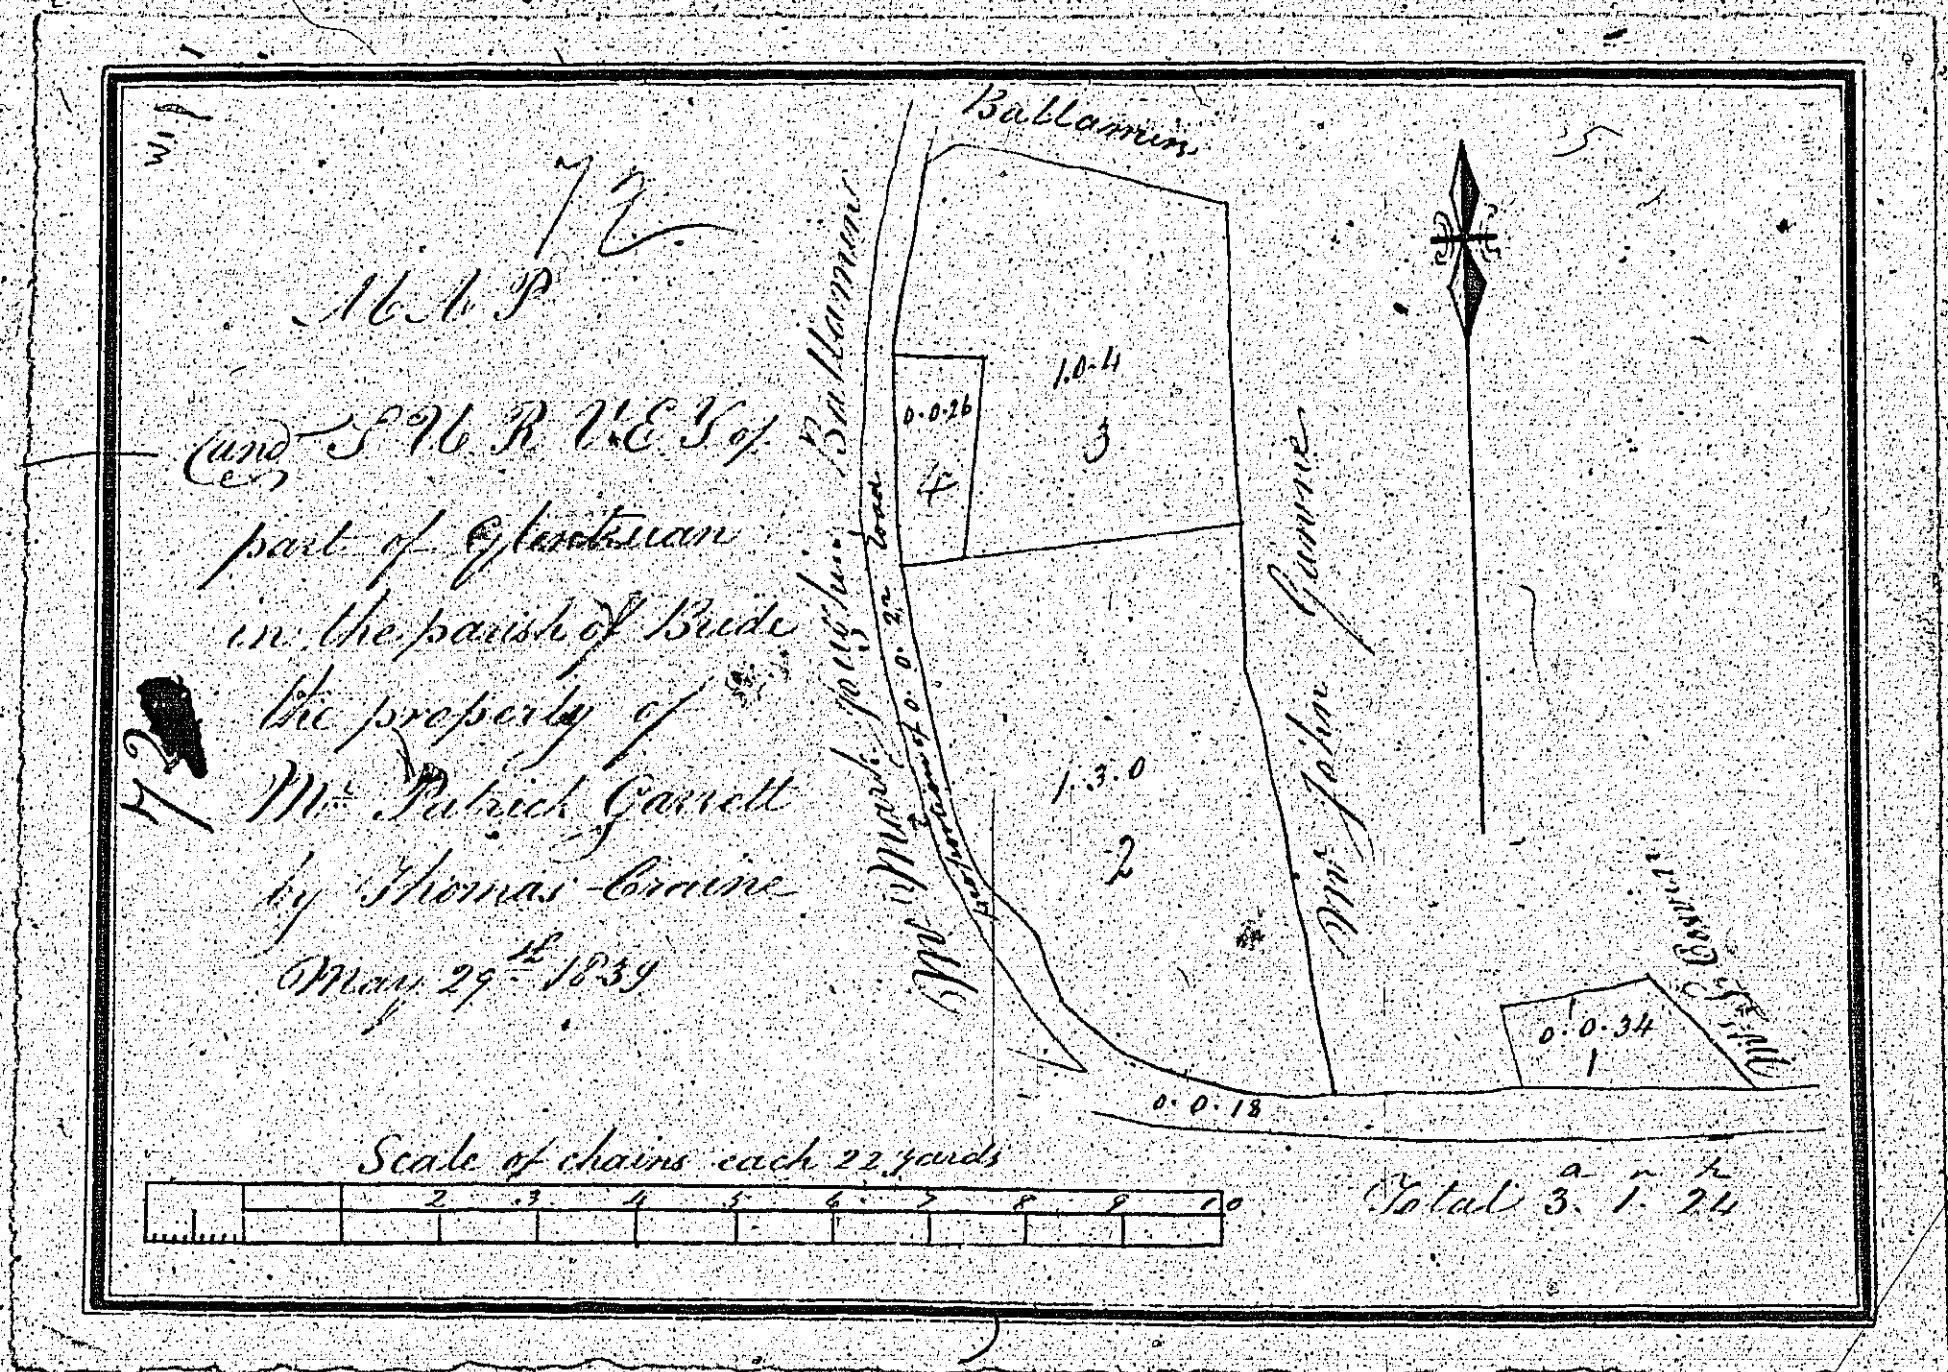 72
MAP
and SURVEY of
part of Glentruan
in the parish of Bride
the property of
Mr Patrick Garrett
by Thomas Craine
May 29th 1839
72
Ballamin
Ballamin
Mr Mark
proportion of 0.0.22 road
1.0.4
3
0.0.26
4
1.3.0
2
Mr John
0.0.34
1
0.0.18
Scale of chains each 22 yards
2 3 4 5 6 7 8 9 10
a r p
Total 3. 1. 24